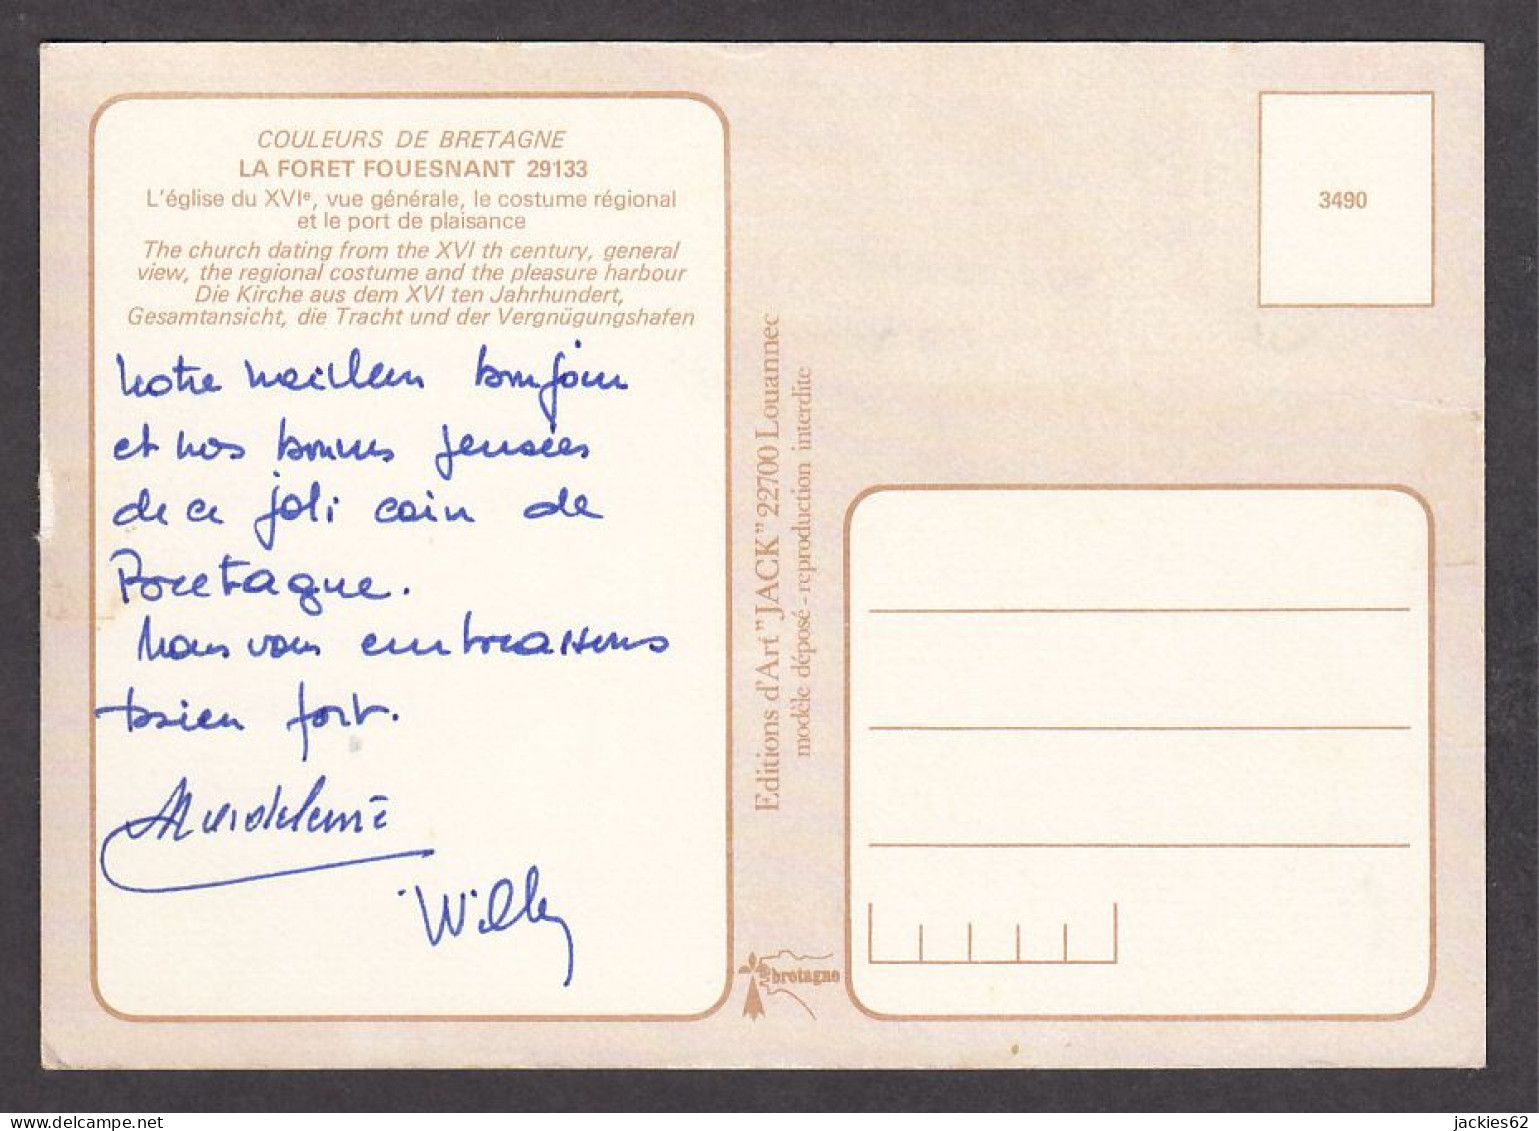 COULEURS DE BRETAGNE
LA FORET FOUESNANT 29133
L'église du XVIe, vue générale, le costume régional
et le port de plaisance
The church dating from the XVI th century, general
view, the regional costume and the pleasure harbour
Die Kirche aus dem XVI ten Jahrhundert,
Gesamtansicht, die Tracht und der Vergnügungshafen
notre meilleur bonjour
et nos bonnes pensées
de ce joli coin de
Bretagne.
Nous vous embrassons
bien fort.
Madeleine
Willy
Editions d'Art "JACK" 22700 Louannec
modèle déposé - reproduction interdite
bretagne
3490
jackies62